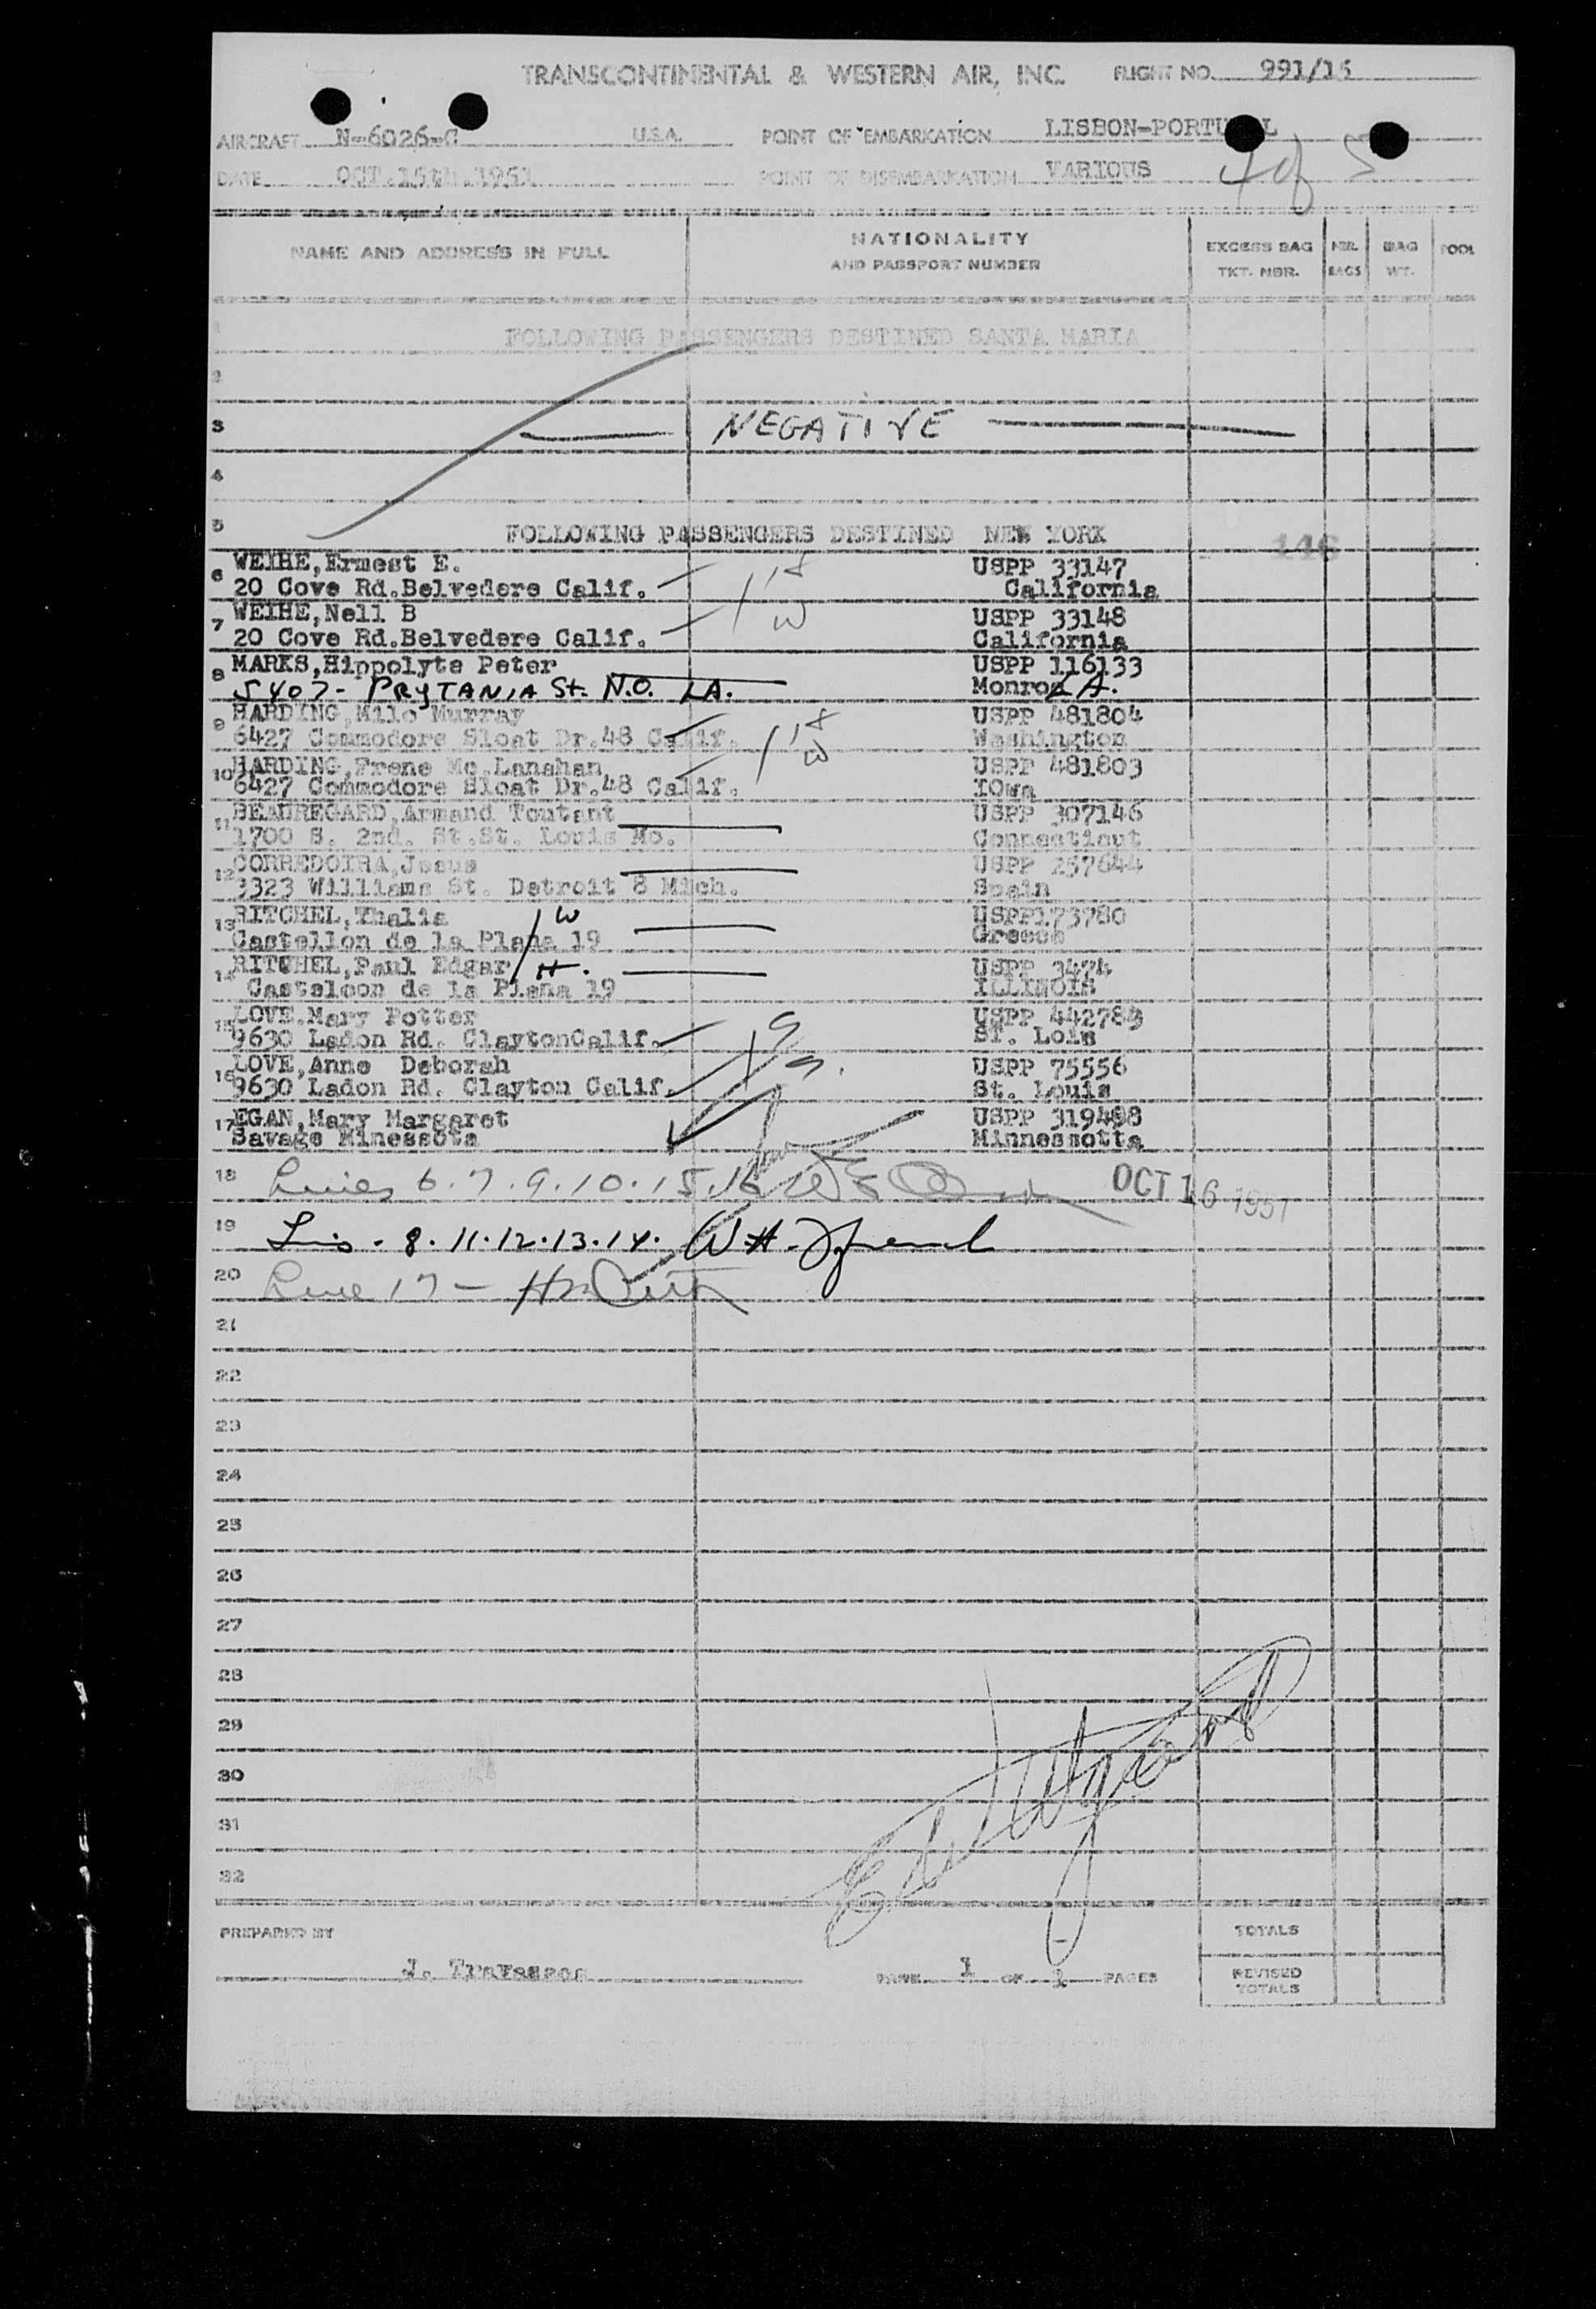 TRANSCONTINENTAL & WESTERN AIR, INC. FLIGHT NO. 991/15
AIRCRAFT N-6026-C U.S.A. POINT OF EMBARKATION LISBON-PORTU L
DATE OCT.15th.1951 POINT OF DISEMBARKATION VARIOUS 4 of 5
NAME AND ADDRESS IN FULL
NATIONALITY
AND PASSPORT NUMBER
EXCESS BAG
TKT. NBR.
NBR.
BAGS
BAG
WT.
POOL
1 FOLLOWING PASSENGERS DESTINED SANTA MARIA
2
3 NEGATIVE
4
5 FOLLOWING PASSENGERS DESTINED NEW YORK
146
6 WEIHE,Ernest E. USPP 33147
20 Cove Rd.Belvedere Calif. H California
7 WEIHE,Nell B USPP 33148
20 Cove Rd.Belvedere Calif. W California
8 MARKS,Hippolyte Peter USPP 116133
5407- PRYTANIA St. N.O. LA. Monroe LA.
9 HARDING,Milo Murray USPP 481804
6427 Commodore Sloat Dr.48 Calif. H Washington
10 HARDING,Frene Mc.Lanahan W USPP 481803
6427 Commodore Sloat Dr.48 Calif. IOwa
11 BEAUREGARD,Armand Toutant USPP 307146
1700 S. 2nd. St.St. Louis Mo. Connecticut
12 CORREDOIRA,Jesus USPP 257644
3323 Williams St. Detroit 8 Mich. Spain
13 RITCHEL,Thalia W USPP173780
Castellon de la Plana 19 Greece
14 RITCHEL,Paul Edgar H. USPP 3474
Casteloon de la Plana 19 ILLINOIS
15 LOVE.Mary Potter USPP 442789
9630 Ladon Rd. ClaytonCalif. ST. Lois
16 LOVE,Anne Deborah USPP 75556
9630 Ladon Rd. Clayton Calif. St. Louis
17 EGAN,Mary Margaret USPP 319498
Savage Minessota Minnessotta
18 Lines 6.7.9.10.15.16 OCT 16 1951
19 Lis. 8.11.12.13.14. W.H.
20 Line 17 -
21
22
23
24
25
26
27
28
29
30
31
32
PREPARED BY TOTALS
J. Travassos PAGE 1 OF 1 PAGES REVISED
TOTALS